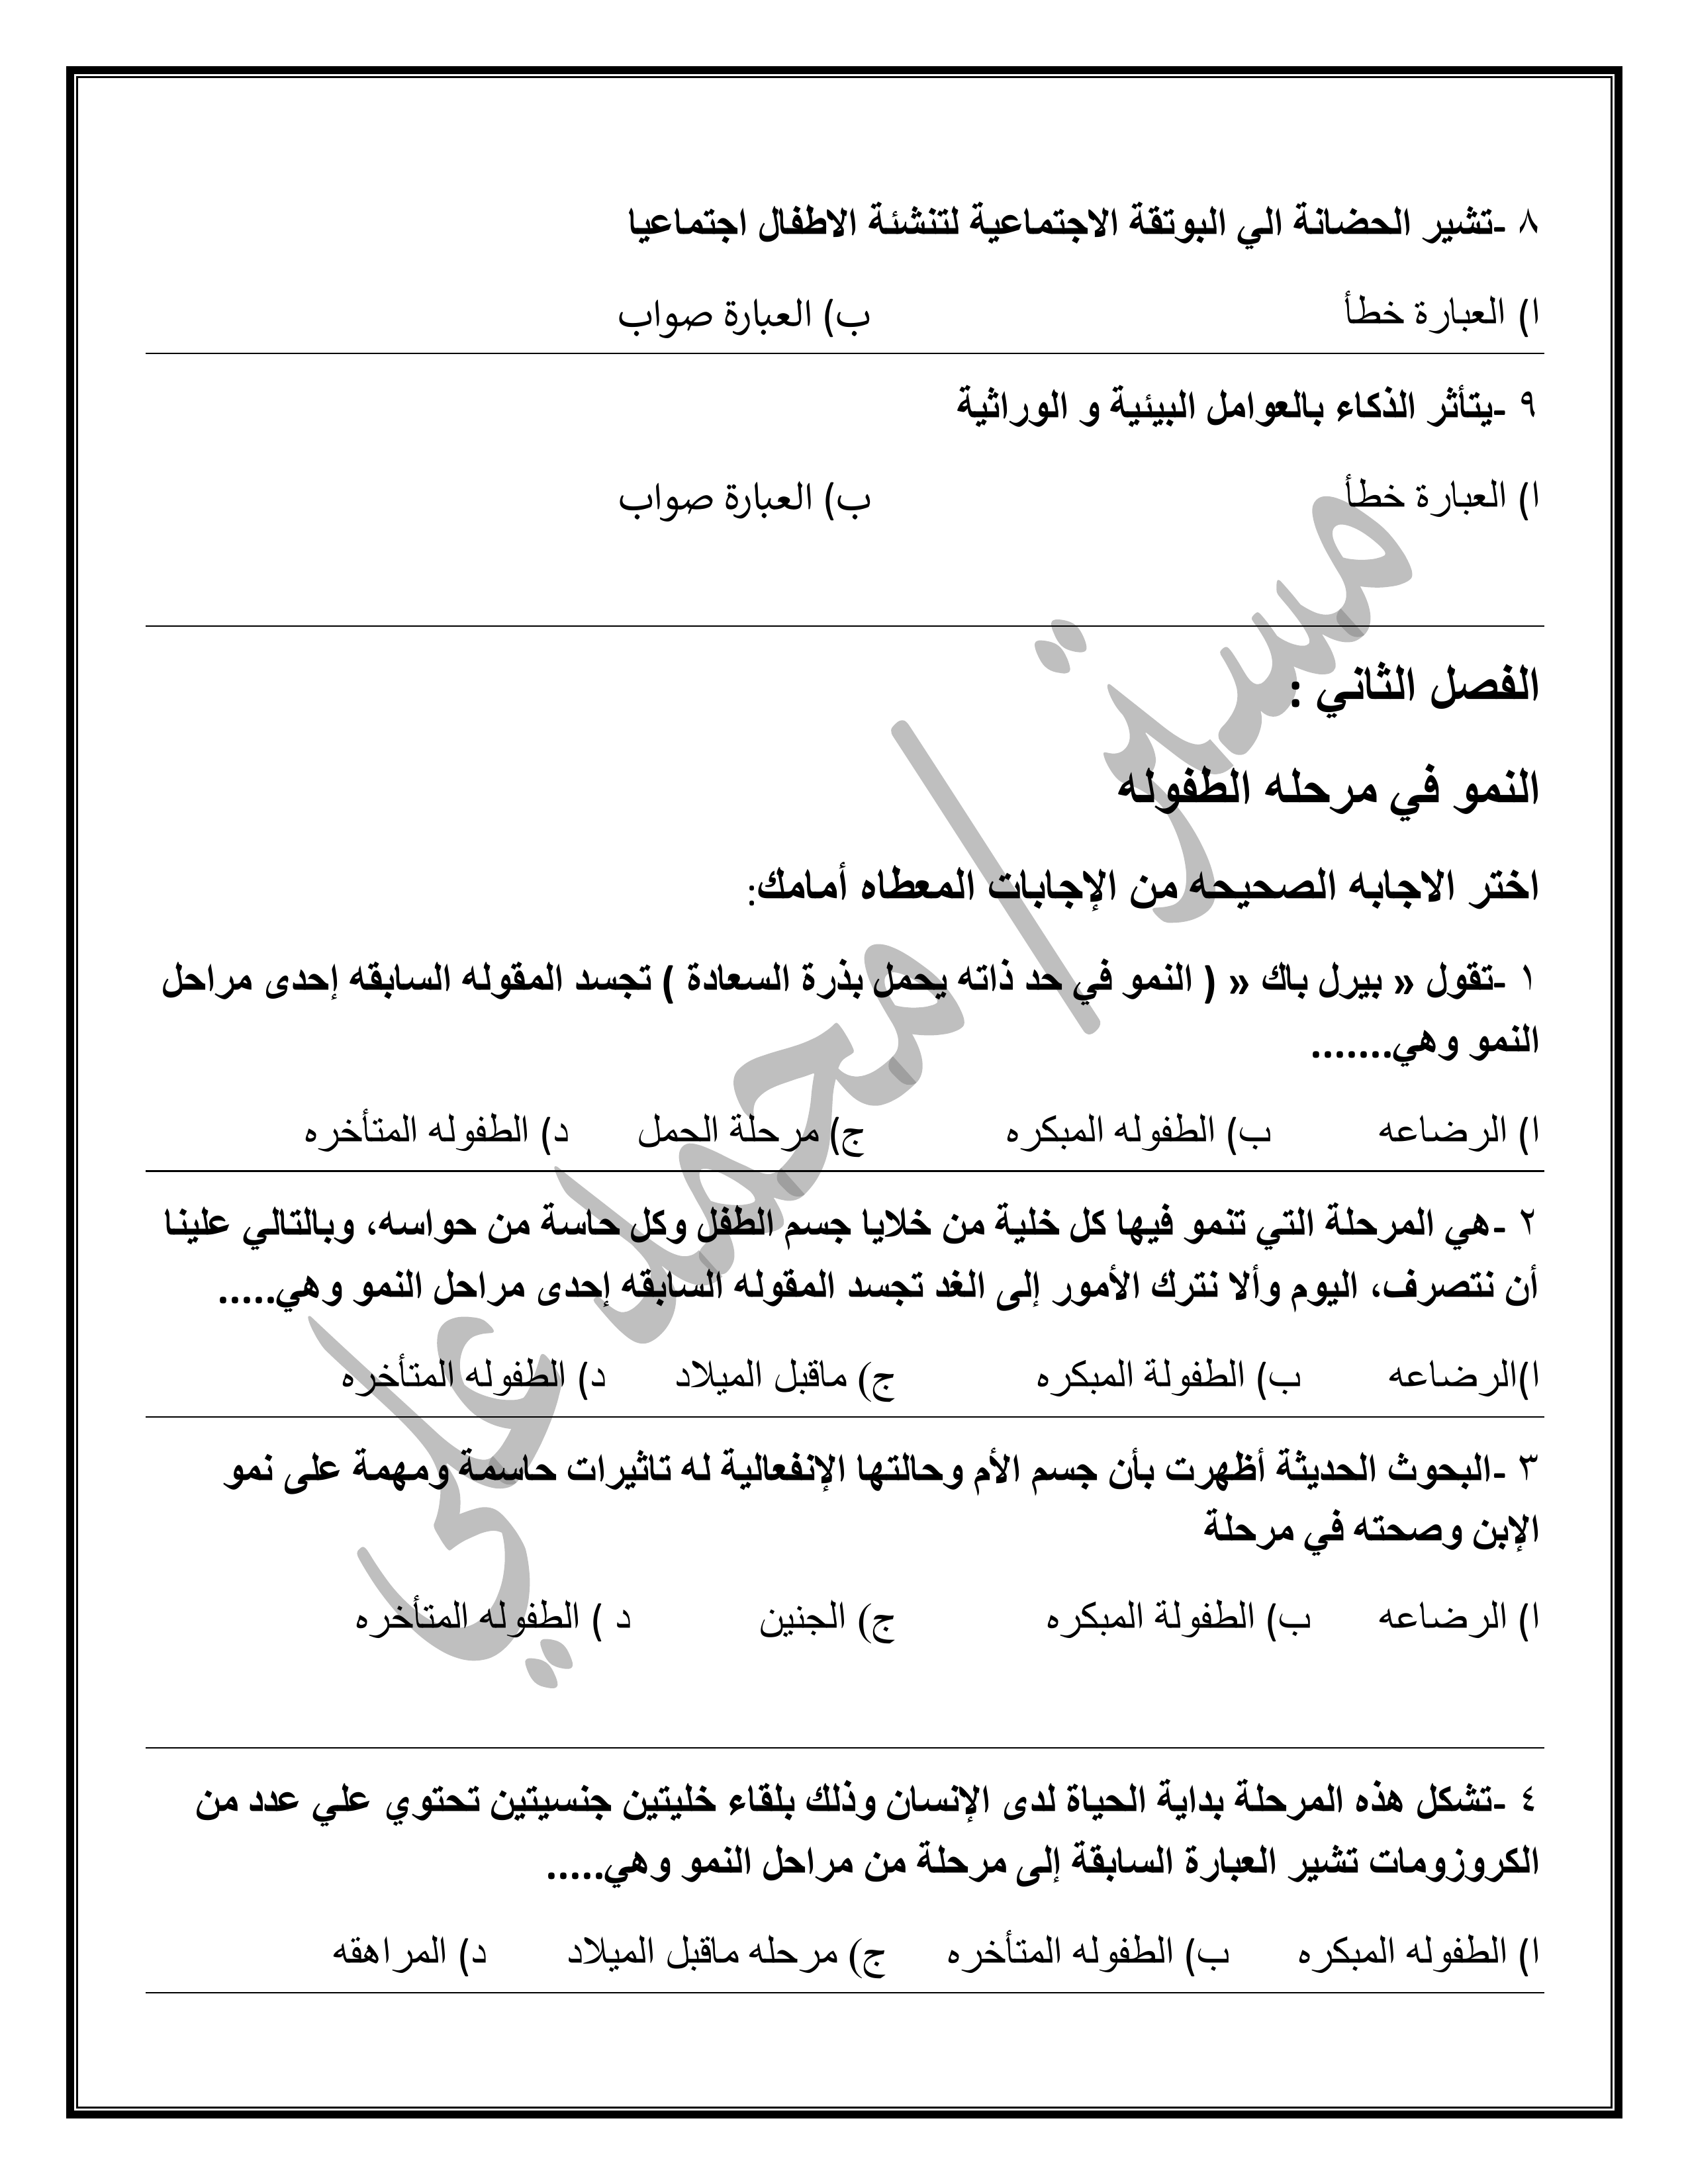 ٨ -تشير الحضانة الي البوتقة الاجتماعية لتنشئة الاطفال اجتماعيا
ا) العبارة خطأ ب) العبارة صواب
٩ -يتأثر الذكاء بالعوامل البيئية و الوراثية
ا) العبارة خطأ ب) العبارة صواب
الفصل الثاني :
النمو في مرحله الطفوله
اختر الاجابه الصحيحه من الإجابات المعطاه أمامك:
١ -تقول « بيرل باك » ( النمو في حد ذاته يحمل بذرة السعادة ) تجسد المقوله السابقه إحدى مراحل
النمو وهي.......
ا) الرضاعه ب) الطفوله المبكره ج) مرحلة الحمل د) الطفوله المتأخره
٢ -هي المرحلة التي تنمو فيها كل خلية من خلايا جسم الطفل وكل حاسة من حواسه، وبالتالي علينا
أن نتصرف، اليوم وألا نترك الأمور إلى الغد تجسد المقوله السابقه إحدى مراحل النمو وهي.....
ا)الرضاعه ب) الطفولة المبكره ج) ماقبل الميلاد د) الطفوله المتأخره
٣ -البحوث الحديثة أظهرت بأن جسم الأم وحالتها الإنفعالية له تاثيرات حاسمة ومهمة على نمو
الإبن وصحته في مرحلة
ا) الرضاعه ب) الطفولة المبكره ج) الجنين د ) الطفوله المتأخره
٤ -تشكل هذه المرحلة بداية الحياة لدى الإنسان وذلك بلقاء خليتين جنسيتين تحتوي علي عدد من
الكروزومات تشير العبارة السابقة إلى مرحلة من مراحل النمو وهي.....
ا) الطفوله المبكره ب) الطفوله المتأخره ج) مرحله ماقبل الميلاد د) المراهقه
مستر/محمد علي